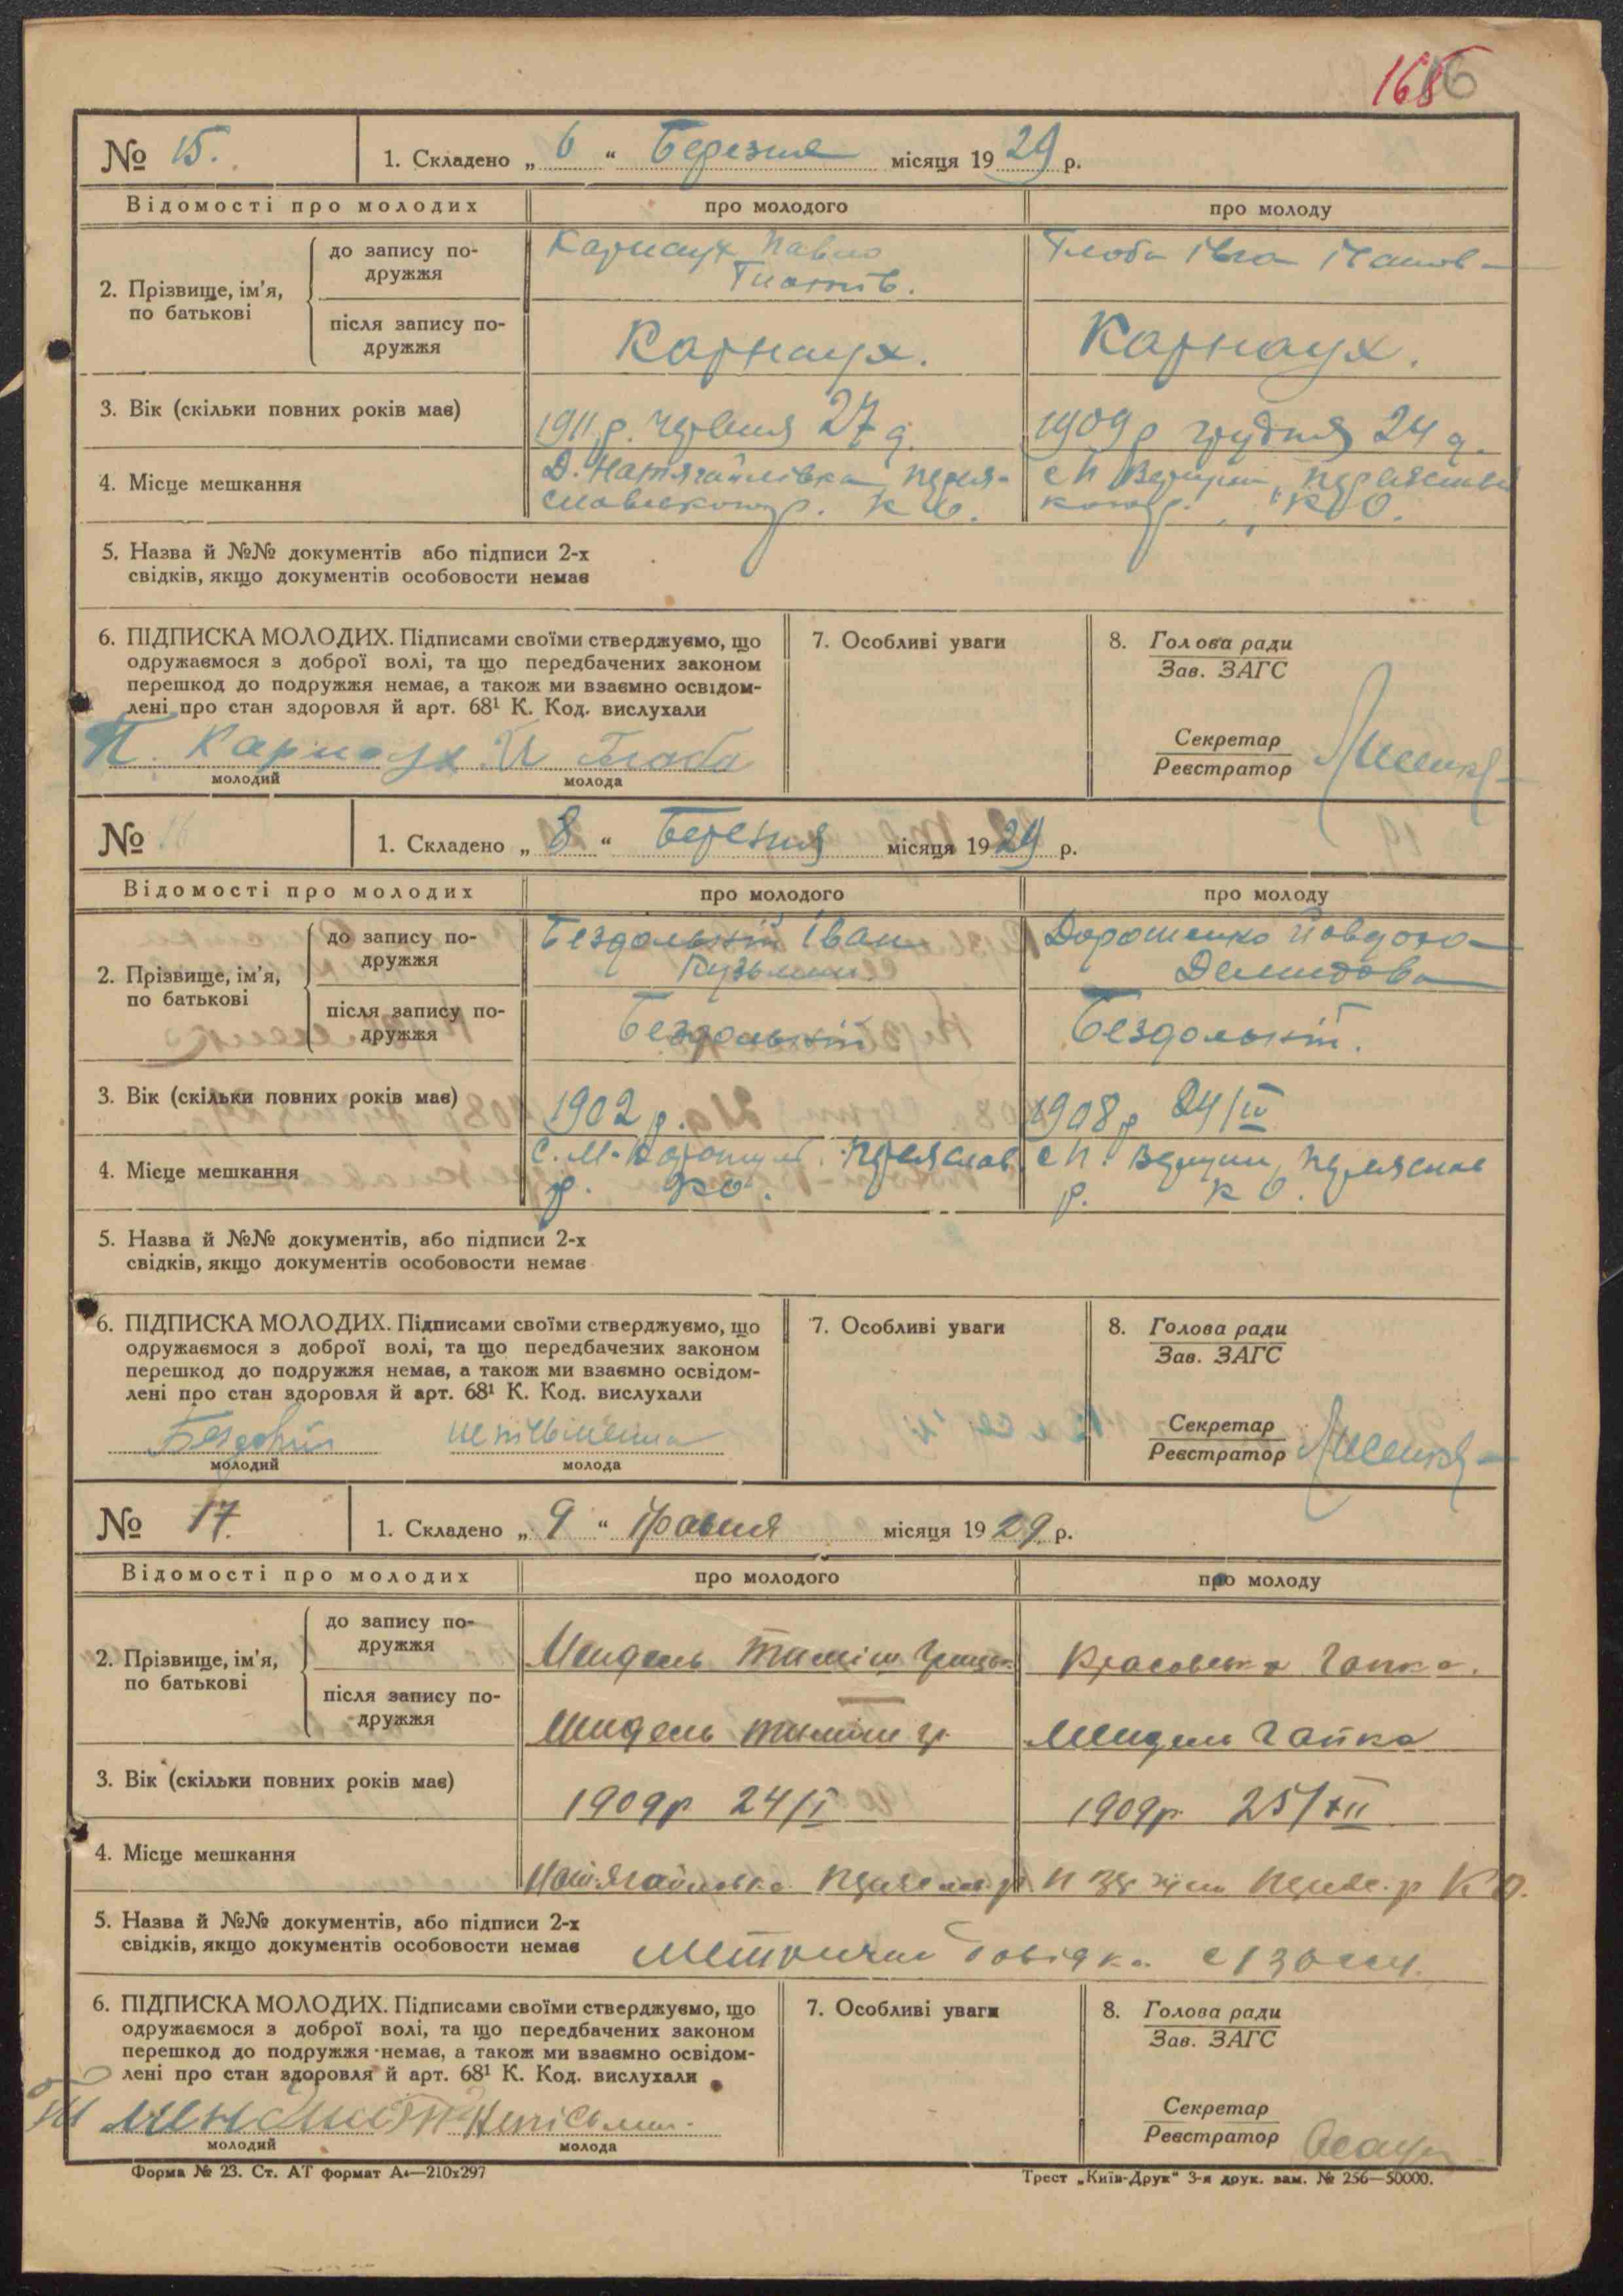 168
16
№ 15.
1. Складено „ 6 “ Березня місяця 1929 р.
Відомості про молодих
про молодого
про молоду
2. Прізвище, ім’я,
по батькові
до запису по-
дружжя
Карнаух Павло
Гнатів.
Глоба Івга Іванов
після запису по-
дружжя
Карнаух.
Карнаух.
3. Вік (скільки повних років має)
1911 р. червня 27 д.
1909 р грудня 24 д.
4. Місце мешкання
Д. Натягайлівка, Перея-
славського р. К О.
с П
К О.
5. Назва й №№ документів або підписи 2-х
свідків, якщо документів особовости немає
6. ПІДПИСКА МОЛОДИХ. Підписами своїми стверджуємо, що
одружаємося з доброї волі, та що передбачених законом
перешкод до подружжя немає, а також ми взаємно освідом-
лені про стан здоровля й арт. 68¹ К. Код. вислухали
П. Карнаух
И Глоба
молодий
молода
7. Особливі уваги
8. Голова ради
Зав. ЗАГС
Секретар
Реєстратор
№ 16
1. Складено „ 8 “ Березня місяця 1929 р.
Відомості про молодих
про молодого
про молоду
2. Прізвище, ім’я,
по батькові
до запису по-
дружжя
Іван
Дорошенко Йовдоха
Демидова
після запису по-
дружжя
3. Вік (скільки повних років має)
1902 р.
1908 р 24/IV
4. Місце мешкання
С. М-Каратуль, Переяслав
р. КО.
с П. Переяслав
р. К О.
5. Назва й №№ документів, або підписи 2-х
свідків, якщо документів особовости немає
6. ПІДПИСКА МОЛОДИХ. Підписами своїми стверджуємо, що
одружаємося з доброї волі, та що передбачених законом
перешкод до подружжя немає, а також ми взаємно освідом-
лені про стан здоровля й арт. 68¹ К. Код. вислухали
неписьменна
молодий
молода
7. Особливі уваги
8. Голова ради
Зав. ЗАГС
Секретар
Реєстратор
№ 17.
1. Складено „ 9 “ Травня місяця 1929 р.
Відомості про молодих
про молодого
про молоду
2. Прізвище, ім’я,
по батькові
до запису по-
дружжя
Мендель Тиміш Грицьк.
Красовська Гапка.
після запису по-
дружжя
Мендель Тиміш Гр.
Мендель Гапка
3. Вік (скільки повних років має)
1909 р 24/I
1909 р. 25/XII
4. Місце мешкання
Натягайлівка р.
р К О.
5. Назва й №№ документів, або підписи 2-х
свідків, якщо документів особовости немає
Метрична довідка
6. ПІДПИСКА МОЛОДИХ. Підписами своїми стверджуємо, що
одружаємося з доброї волі, та що передбачених законом
перешкод до подружжя немає, а також ми взаємно освідом-
лені про стан здоровля й арт. 68¹ К. Код. вислухали
молодий
молода
7. Особливі уваги
8. Голова ради
Зав. ЗАГС
Секретар
Реєстратор
Форма № 23. Ст. АТ формат А₄—210х297
Трест „Київ-Друк“ 3-я друк. зам. № 256—50000.